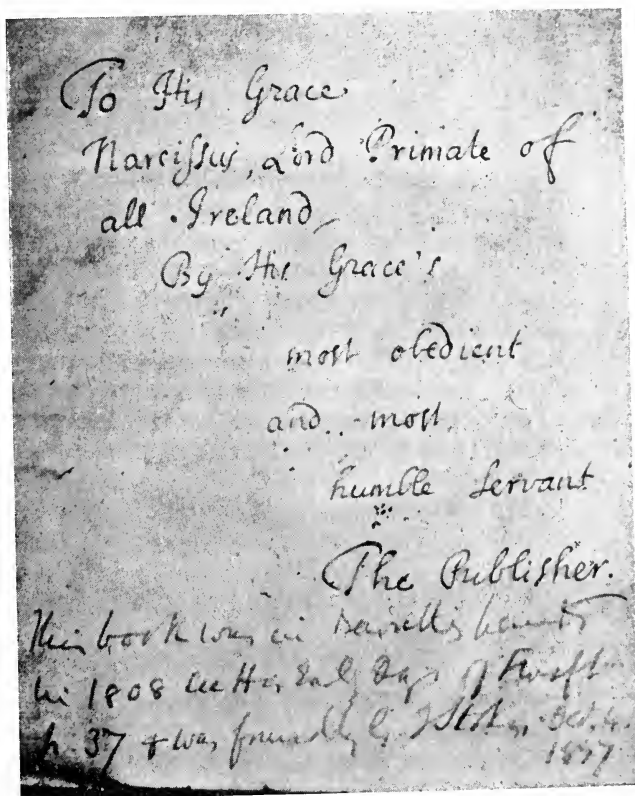 To His Grace
Narcissus, Lord Primate of
all Ireland,
By His Grace's
most obedient
and most
humble servant
The Publisher.
This book was in Barrett's hands
in 1808 Early Days of Swift
p. 37 & was found by Oct. 4.